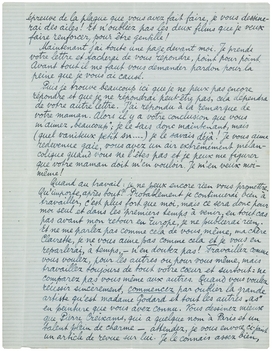 épreuve de la plaque que vous avez fait faire, je vous dessine-
rai des ailes! Et n'oubliez pas les deux films que je veux
faire renforcer, pour être gentille!
Maintenant j'ai toute une page devant moi. Je prends
votre lettre et tâcherai de vous répondre, point pour point.
Avant tout il me faut vous demander pardon pour la
peine que je vous ai causé.
Puis je trouve beaucoup ici que je ne puis pas encore
répondre et que je ne répondrai peut être pas, cela dépendra
de votre autre lettre. J'ai répondu à la remarque de
votre maman. Alors il y a votre conclusion que vous
m'aimez beaucoup; je les donc maintenant, mais
(quel vaniteux petit son...) je le savais déjà! Je vous aime
vous avez un air extrêmement mélan-
colique quand vous ne l'êtes pas et je peux me figurer
que votre maman doit m'en vouloir. Je m'en veux moi-
même!
Quand au travail je ne peux encore rien vous promettre.
Qu'importe après tout? Probablement je continuerai bien à
travailler, c'est plus fort que moi, mais ce sera donc pour
moi seul et dans les premiers temps à venir, en tout cas
pas avant mon retour en Europe, je ne publierai rien.
Et ne me parlez pas comme cela de vous même, ma chère
Clairette, je ne vous aime pas comme cela et je vous en
reparlerai, à temps, — n'en doutez pas! Travaillez comme
vous voulez, pour les autres ou pour vous même, mais
travaillez toujours de tout votre coeur et surtout: ne
comparez pas vous même aux autres. Quand vous voulez
réussir sincèrement, commencez par oublier la grande
artiste qu'est madame Godard et tout les autres „as"
en peinture que vous avez connu. Vous dessinez mieux
que Pierre qui a quelque nom à Paris et un
talent plein de charme — attendez, je vous envoi, ci-joint
un article de revue sur lui. Je le connais assez bien,